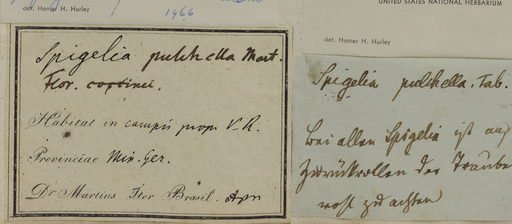 1966
det. Homer H. Hurley
UNITED STATES NATIONAL HERBARIUM
det. Homer H. Hurley
Spigelia pulchella Mart.
Flor. coccinei.
Habitat in campis prope V. R.
Provinciae Min. Ger.
Dr Martius Iter Brasil.
Spigelia pulchella. Tab.
bei allen Spigelia ist auf
Zurückrollen der Traube
wohl zu achten